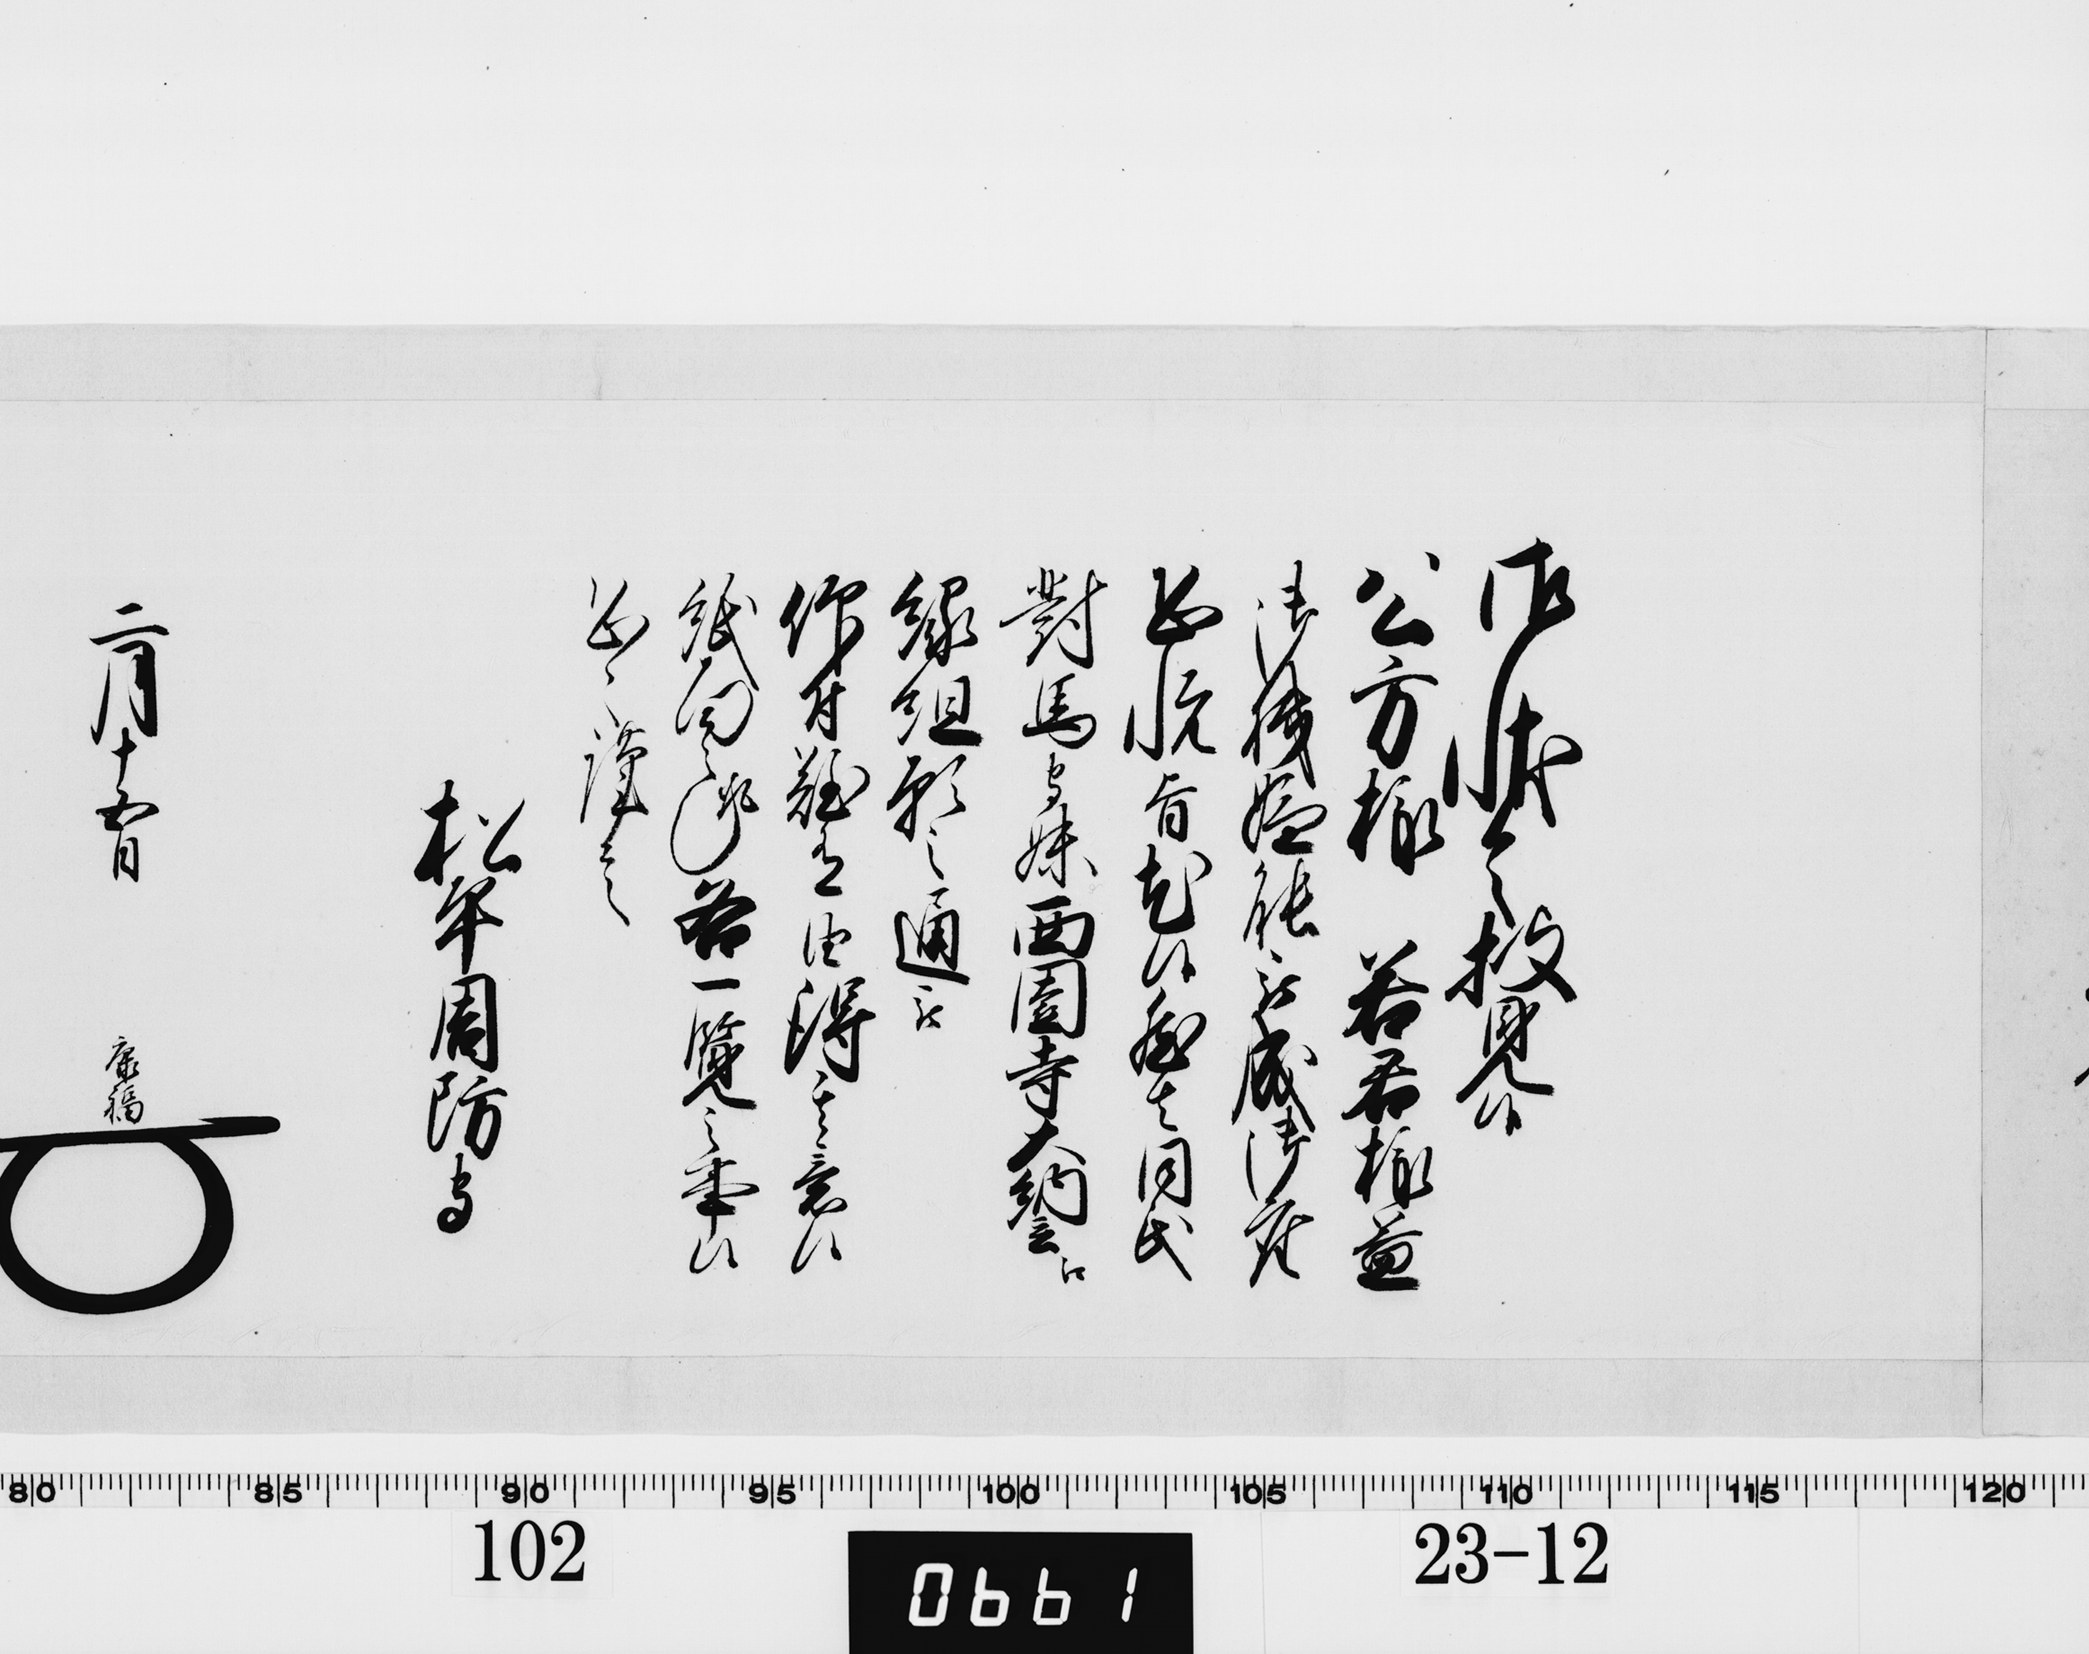 御状令披見候
公方様 若君様益
御機嫌能被成御座
恐悦旨尤候然者同氏
對馬守妹西園寺大納言江
縁組願之通被
仰付難有由得其意候
紙面之趣各一覧之事候
恐々謹言
松平周防守
二月十五日 康福
80 85 90 95 100 105 110 115 120
102 0661 23-12